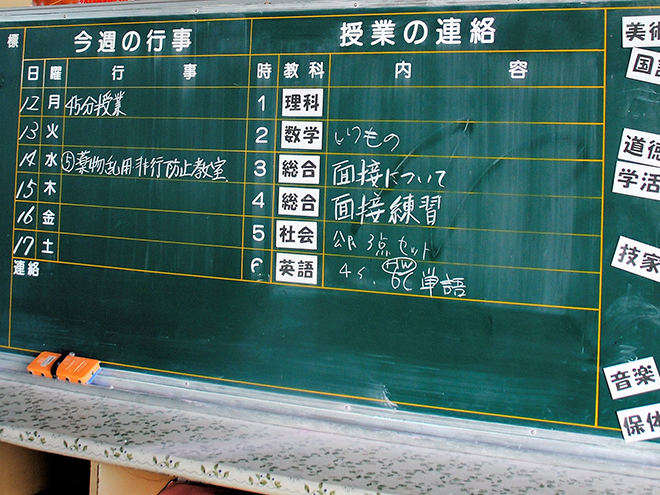 標
今週の行事
日 曜 行事
12 月 45分授業
13 火
14 水 ⑤薬物乱用非行防止教室
15 木
16 金
17 土
連絡
授業の連絡
時 教科 内容
1 理科
2 数学 いつもの
3 総合 面接について
4 総合 面接練習
5 社会 公民 3点セット
6 英語 HW 単語
美術
国語
道徳
学活
技家
音楽
保体